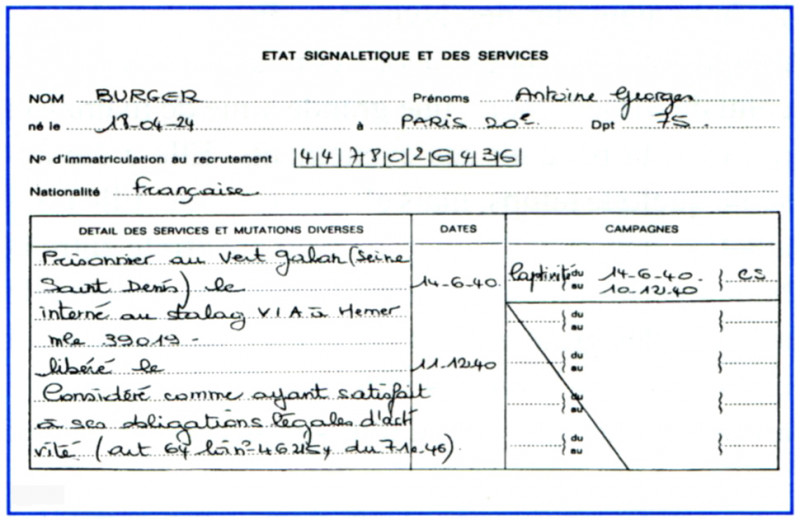 ETAT SIGNALETIQUE ET DES SERVICES
NOM BURGER Prénoms Antoine Georges
né le 18-04-24 à PARIS 20e Dpt 75.
N° d'immatriculation au recrutement |4|4|7|8|0|2|6|4|3|6|
Nationalité française
DETAIL DES SERVICES ET MUTATIONS DIVERSES DATES CAMPAGNES
Prisonnier au Vert galan (Seine
Saint Denis) le 14-6-40. Captivité du 14-6-40. au 10-12-40 } CS
interné au stalag V I A à Hemer du au
mle 39019 -
libéré le 11-12-40 du au
Considéré comme ayant satisfait du au
à ses obligations légales d'acti
vité (art 64 loi n° 46 du 7 46). du au